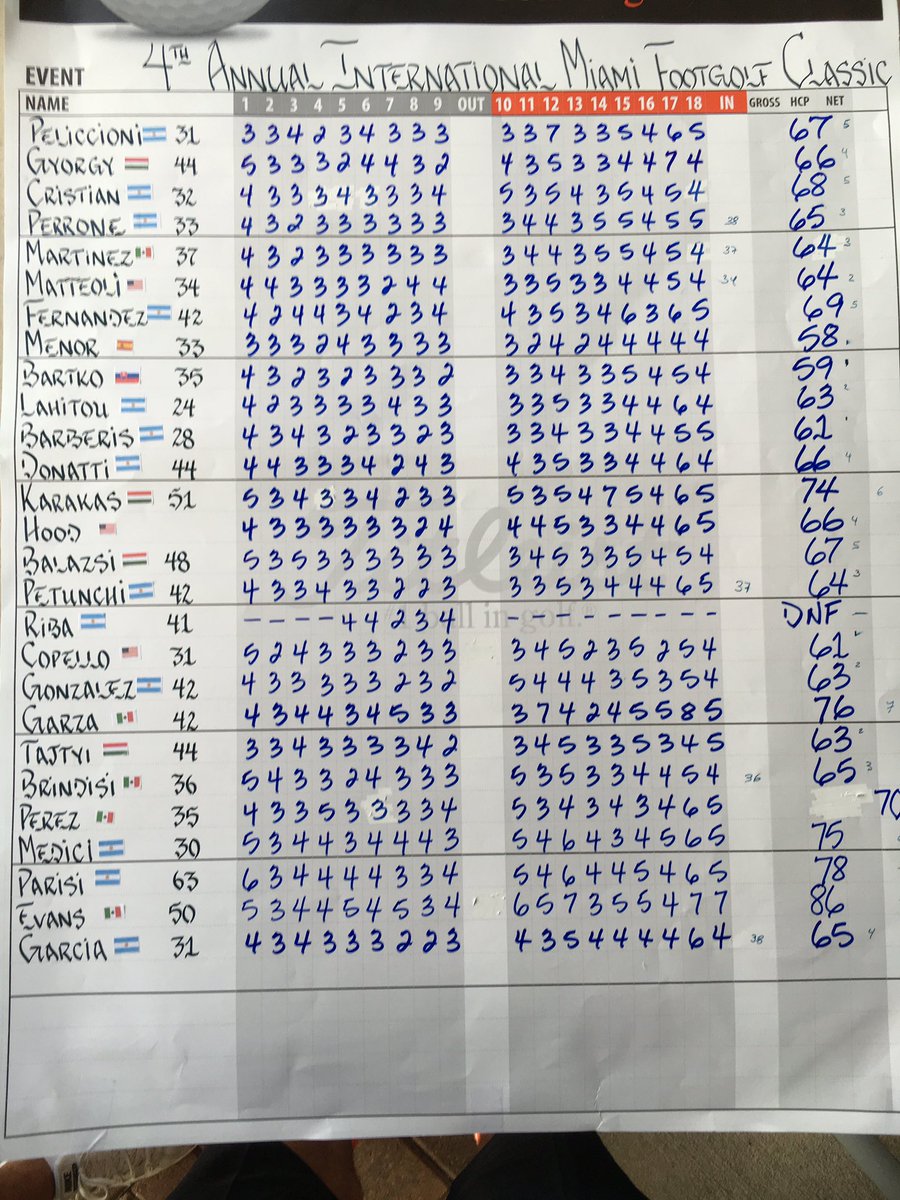 EVENT 4TH ANNUAL INTERNATIONAL MIAMI FOOTGOLF CLASSIC
NAME 1 2 3 4 5 6 7 8 9 OUT 10 11 12 13 14 15 16 17 18 IN GROSS HCP NET
PELICCIONI 31 3 3 4 2 3 4 3 3 3 3 3 7 3 3 5 4 6 5 67 5
GYORGY 44 5 3 3 3 2 4 4 3 2 4 3 5 3 3 4 4 7 4 66 4
CRISTIAN 32 4 3 3 3 4 3 3 3 4 5 3 5 4 3 5 4 5 4 68 5
PERRONE 33 4 3 2 3 3 3 3 3 3 3 4 4 3 5 5 4 5 5 38 65 3
MARTINEZ 37 4 3 2 3 3 3 3 3 3 3 4 4 3 5 5 4 5 4 37 64 3
MATTEOLI 34 4 4 3 3 3 3 2 4 4 3 3 5 3 3 4 4 5 4 34 64 2
FERNANDEZ 42 4 2 4 4 3 4 2 3 4 4 3 5 3 4 6 3 6 5 69 5
MENOR 33 3 3 3 2 4 3 3 3 3 3 2 4 2 4 4 4 4 4 58
BARTKO 35 4 3 2 3 2 3 3 3 2 3 3 4 3 3 5 4 5 4 59
LAHITOU 24 4 2 3 3 3 3 4 3 3 3 3 5 3 3 4 4 6 4 63 2
BARBERIS 28 4 3 4 3 2 3 3 2 3 3 3 4 3 3 4 4 5 5 61
DONATTI 44 4 4 3 3 3 4 2 4 3 4 3 5 3 3 4 4 6 4 66 4
KARAKAS 51 5 3 4 3 3 4 2 3 3 5 3 5 4 7 5 4 6 5 74 6
HOOD 4 3 3 3 3 3 3 2 4 4 4 5 3 3 4 4 6 5 66 4
BALAZSI 48 5 3 5 3 3 3 3 3 3 3 4 5 3 3 5 4 5 4 67 5
PETUNCHI 42 4 3 3 4 3 3 2 2 3 3 3 5 3 4 4 4 6 5 37 64 3
RIBA 41 - - - - 4 4 2 3 4 - - - - - - - - - DNF -
all in golf.®
COPELLO 31 5 2 4 3 3 3 2 3 3 3 4 5 2 3 5 2 5 4 61
GONZALEZ 42 4 3 3 3 3 3 2 3 2 5 4 4 4 3 5 3 5 4 63 2
GARZA 42 4 3 4 4 3 4 5 3 3 3 7 4 2 4 5 5 8 5 76 7
TAJTYI 44 3 3 4 3 3 3 3 4 2 3 4 5 3 3 5 3 4 5 63 2
BRINDISI 36 5 4 3 3 2 4 3 3 3 5 3 5 3 3 4 4 5 4 36 65 3
PEREZ 35 4 3 3 5 3 3 3 3 4 5 3 4 3 4 3 4 6 5 70
MEDICI 30 5 3 4 4 3 4 4 4 3 5 4 6 4 3 4 5 6 5 75
PARISI 63 6 3 4 4 4 4 3 3 4 5 4 6 4 4 5 4 6 5 78
EVANS 50 5 3 4 4 5 4 5 3 4 6 5 7 3 5 5 4 7 7 86
GARCIA 31 4 3 4 3 3 3 2 2 3 4 3 5 4 4 4 4 6 4 38 65 4